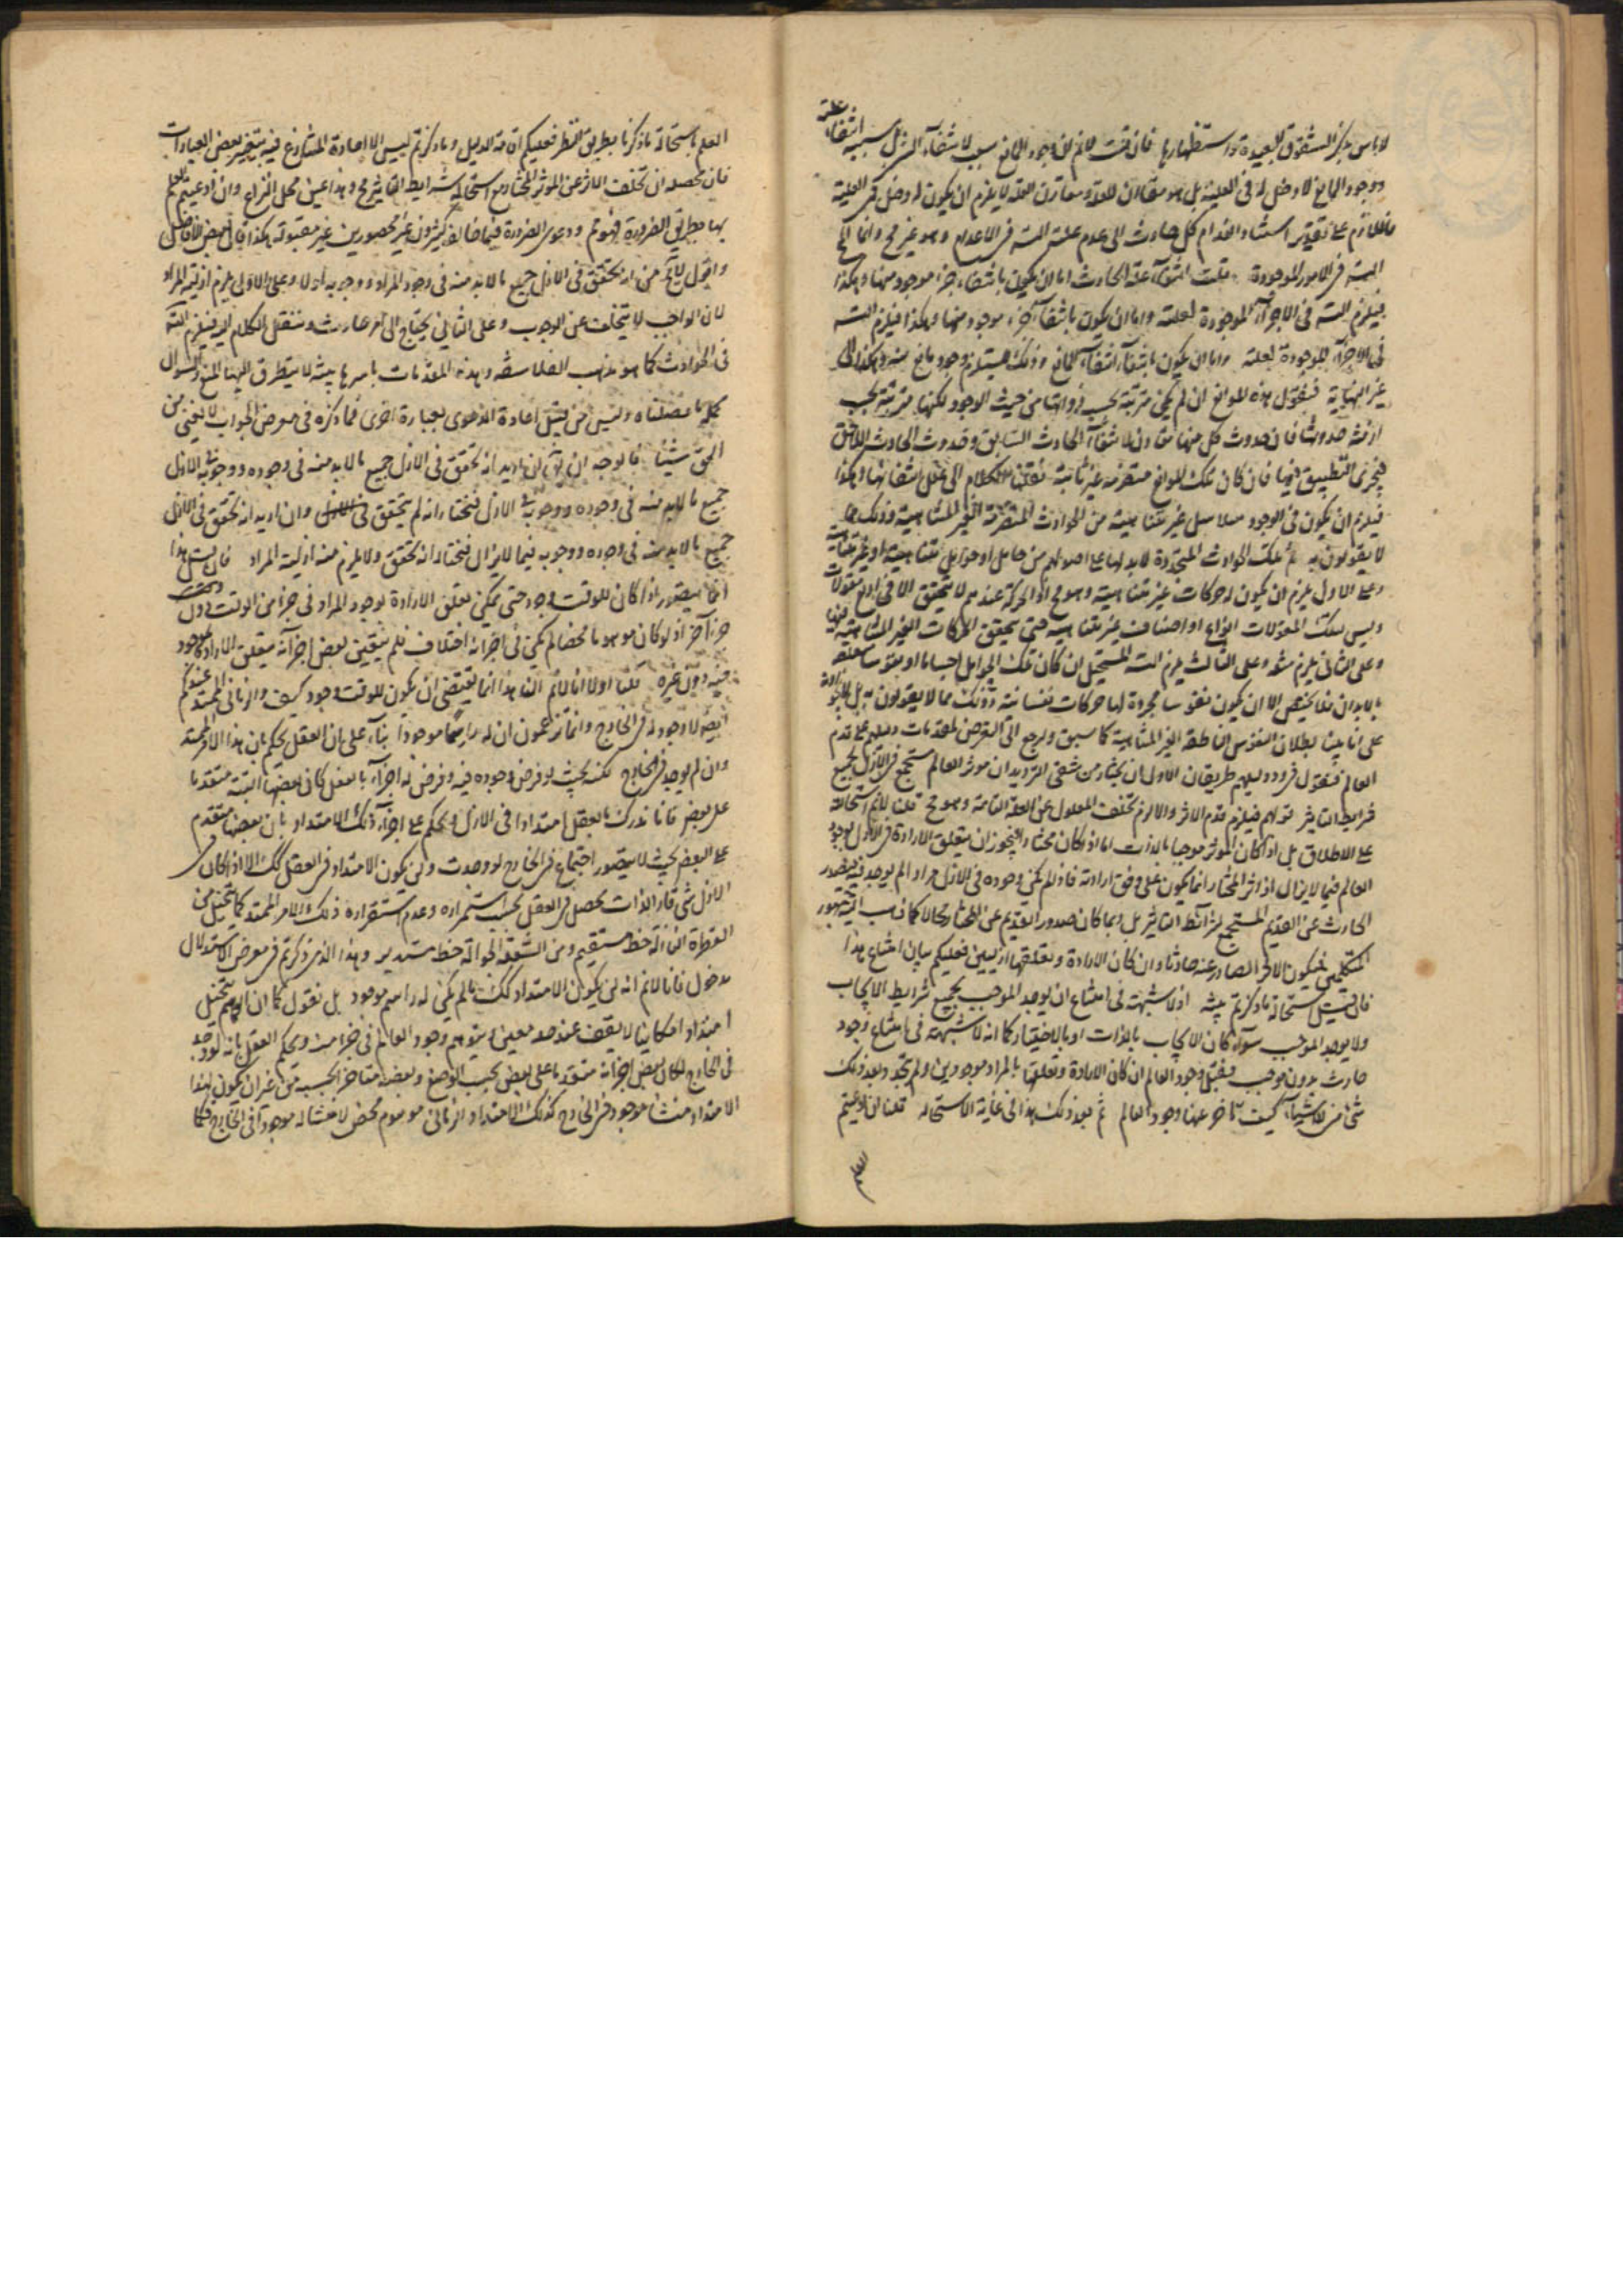 لا بأس بذكر الشقوق البعيدة واستظهارها فان قلت لانم ان وجود المانع سبب لانتفاء بسبب انتفاء علته
ووجود المانع لا دخل له فى العلية بل هو مقارن للعلة ومقارن العلة لا يلزم ان يكون له دخل فى العلية
فاللازم على تقدير استناد انعدام كل حادث الى عدم علته التس فى الاعدام وهو غير مح وانما المح
التس فى الامور الموجودة قلت انتفاء علة الحادث اما ان يكون بانتفاء جزء موجود منها وهكذا
فيلزم التس فى الاجزاء الموجودة لعلته واما ان يكون بانتفاء جزء موجود منها وهكذا فيلزم التس
فى الاجزاء الموجودة لعلته واما ان يكون بانتفاء انتفاء المانع وذلك يستلزم وجود مانع منه وهكذا الى
غير النهاية فنقول هذه الموانع ان لم يكن مترتبة بحسب ذواتها من حيث الوجود لكنها مترتبة بحسب
ازمنة حدوثها فان حدوث كل منها مقارن لانتفاء الحادث السابق وحدوث الحادث اللاحق
فيجرى التطبيق فيها فان كان تلك الموانع متصرمة غير ثابتة نقلنا الكلام الى علل انتفائها وهكذا
فيلزم ان يكون فى الوجود سلاسل غير متناهية من الحوادث المتصرمة الغير المتناهية وذلك مما
لا يقولون به ثم تلك الحوادث المتجددة لا بد لها على اصولهم من حامل او حوامل متناهية او غير متناهية
وعلى الاول يلزم ان يكون له حركات غير متناهية وهو مح اذ الحركة عندهم لا يتحقق الا فى اربع مقولات
وليس لتلك المقولات انواع او اصناف غير متناهية حتى يتحقق الحركات الغير المتناهية فيها
وعلى الثانى يلزم مثله وعلى الثالث يلزم التس المستحيل ان كان تلك الحوامل اجساما او نفوسا متعلقة
بالابدان فلا مخلص الا ان يكون نفوسا مجردة لها حركات نفسانية وذلك مما لا يقولون به بل
على انا بينا بطلان النفوس الناطقة الغير المتناهية كما سبق ولنرجع الى التعرض لمقدمات دليلهم على قدم
العالم فنقول فى رد دليلهم طريقان الاول ان يختار من شقى الترديد ان موثر العالم مستجمع فى الازل لجميع
شرايط التاثير قولهم فيلزم قدم الاثر والا لزم تخلف المعلول عن العلة التامة وهو مح قلنا لانم استحالته
على الاطلاق بل اذا كان الموثر موجبا بالذات اما اذا كان مختارا فيجوز ان يتعلق الارادة فى الازل بوجود
العالم فيما لا يزال اذ اثر المختار انما يكون على وفق ارادته فاذا لم يكن وجوده فى الازل مرادا لم يوجد فيه فيصدر
الحادث عن القديم المستجمع لشرائط التاثير بل ربما كان صدور القديم عن المختار محالا كما ذهب اليه جمهور
المتكلمين فيكون الاثر الصادر عنه حادثا وان كان الارادة وتعلقها ازليين فعليكم بيان امتناع هذا
فان قيل استحالة ما ذكرتم بينة اذ لا شبهة فى امتناع ان يوجد الموجب بجميع شرايط الايجاب
ولا يوجد الموجب سواء كان الايجاب بالذات او بالاختيار كما انه لا شبهة فى امتناع وجود
حادث بدون موجب فقبل وجود العالم ان كان الارادة وتعلقها بالمراد موجودين ولم يتجدد بعد ذلك
شئ من الاشياء كيف تأخر عنها وجود العالم ثم بعد ذلك هذا فى غاية الاستحالة قلنا ان ادعيتم
العلم
العلم باستحالة ما ذكرنا بطريق النظر فعليكم اقامة الدليل وما ذكرتم ليس الا اعادة المتنازع فيه بتغيير بعض العبارات
فان محصله ان تخلف الاثر عن الموثر المختار مع استجماله شرايط التاثير مح وهذا عين محل النزاع وان ادعيتم العلم
بها بطريق الضرورة فمم ودعوى الضرورة فيما خالف كثيرون غير محصورين غير مقبولة هكذا قال بعض الافاضل
واقول لابد من ان يتحقق فى الازل جميع ما لابد منه فى وجود المراد ووجوبه اولا وعلى الاول يلزم ازلية المراد
لان الواجب لا يتخلف عن الوجوب وعلى الثانى يحتاج الى امر حادث وننقل الكلام اليه فيلزم التس
فى الحوادث كما هو مذهب الفلاسفه وهذه المقدمات باسرها بينة لا يتطرق اليها المنع والسوال
كله ما فصلناه وليس من قبيل اعادة الدعوى بعبارة اخرى فما ذكره فى معرض الجواب لا يغنى من
الحق شيئا فالوجه ان يقال ان اريد انه تحقق فى الازل جميع ما لابد منه فى وجوده ووجوبه فى الازل
جميع ما لابد منه فى وجوده ووجوبه فى الازل فنختار انه لم يتحقق فى الازل وان اريد انه تحقق فى الازل
جميع ما لابد منه فى وجوده ووجوبه فيما لا يزال فنختار انه تحقق ولا يلزم منه ازلية المراد فان قلت هذا
انما يتصور اذا كان للوقت وجود حتى يمكن تعلق الارادة بوجود المراد فى جزء من الوقت دون
جزء آخر اذ لو كان موهوما محضا لم يكن فى اجزائه اختلاف فلم يتعين بعض اجزائه بتعلق الارادة لوجود
فيه دون غيره قلنا اولا انا لانم ان هذا انما يقتضى ان يكون للوقت وجود كيف والزمانى الممتد عندكم
ايضا لا وجود له فى الخارج وانما تزعمون ان له راسما موجودا بناء على ان العقل يحكم بان هذا الامر الممتد
وان لم يوجد فى الخارج لكنه بحيث لو فرض وجوده فيه وفرض له اجزاء بالفعل كان بعضها البتة متقدما
على بعض فانا ندرك بالعقل امتدادا فى الازل ونحكم على اجزاء ذلك الامتداد بان بعضها متقدم
على البعض بحيث لا يتصور اجتماعها فى الخارج لو وجدت ولن يكون الامتداد فى العقل كذلك الا اذا كان فى
الازل شئ قار الذات يحصل فى العقل بحسب استمراره وعدم استقراره ذلك الامر الممتد كما يتخيل من
القطرة النازلة خط مستقيم ومن الشعلة الجوالة خط مستدير وهذا الذى ذكرتم فى معرض الاستدلال
مدخول فانا لانم انه لن يكون الامتداد كذلك ما لم يكن له راسم موجود بل نقول كما ان الوهم يتخيل
امتدادا مكانيا لا يقف عند حد معين ويتوهم وجود العالم فى جزء منه ويحكم العقل بانه لو وجد
فى الخارج لكان بعض اجزائه متقدما على بعض بحسب الوضع وبعضه متاخرا بحسبه من غير ان يكون لهذا
الامتداد منشأ موجود فى الخارج كذلك الامتداد الزمانى موهوم محض لا منشأ له موجودا فى الخارج فكما